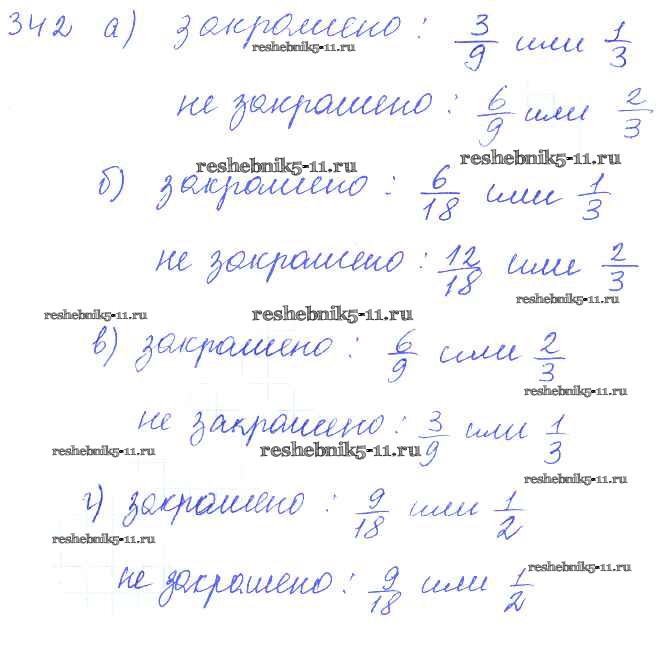 342 а) закрашено: 3/9 или 1/3
reshebnik5-11.ru
не закрашено: 6/9 или 2/3
reshebnik5-11.ru reshebnik5-11.ru
б) закрашено: 6/18 или 1/3
не закрашено: 12/18 или 2/3
reshebnik5-11.ru
reshebnik5-11.ru reshebnik5-11.ru
в) закрашено: 6/9 или 2/3
reshebnik5-11.ru
не закрашено: 3/9 или 1/3
reshebnik5-11.ru reshebnik5-11.ru
reshebnik5-11.ru
г) закрашено: 9/18 или 1/2
reshebnik5-11.ru
reshebnik5-11.ru
не закрашено: 9/18 или 1/2